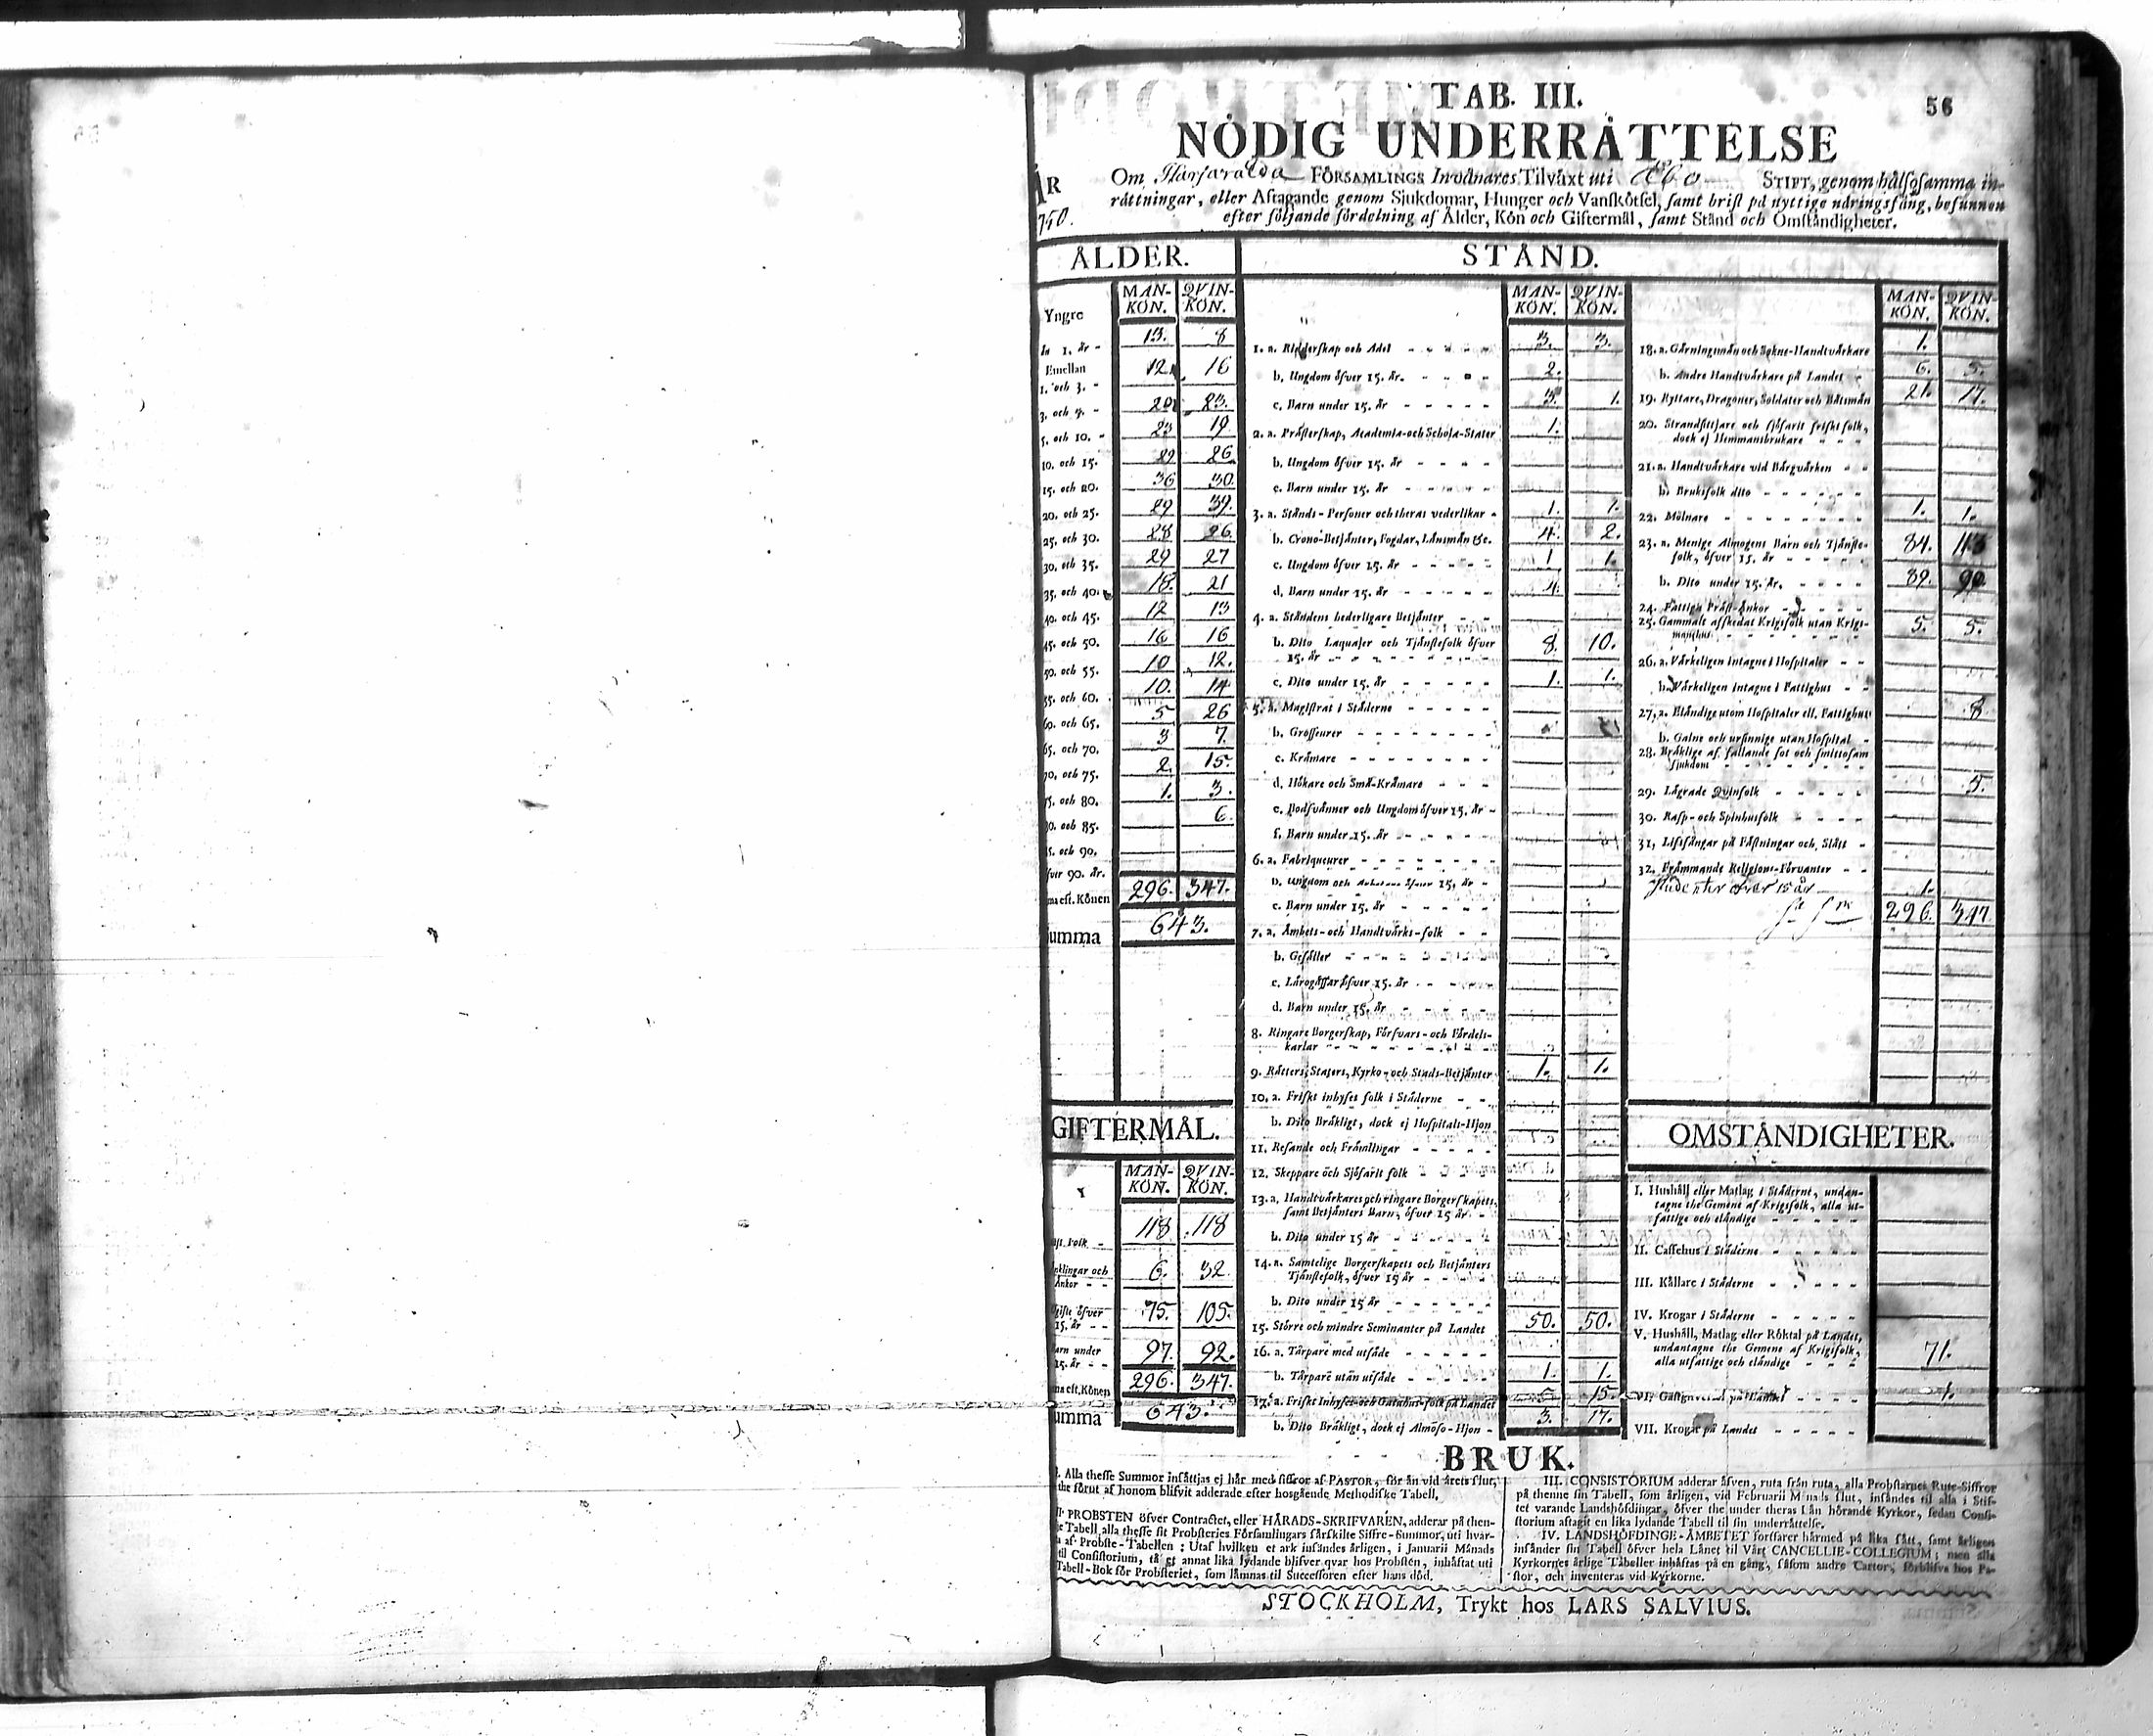 56
TAB. III.
NÖDIG UNDERRÄTTELSE
ÅR
Om FÖRSAMLINGS Invånares Tilväxt uti Åbo STIFT, genom hälsosamma in-
rättningar, eller Aftagande genom Sjukdomar, Hunger och Vanskötsel, samt brist på nyttige näringsfång, befunnen
efter följande fördelning af Ålder, Kön och Giftermål, samt Stånd och Omständigheter.
750.
ÅLDER.
MAN-KÖN. QVIN-KÖN.
Yngre
än 1. år - 13. 8
Emellan
1. och 3. - 12 16
3. och 5. - 20 23.
5. och 10. - 23 19
10. och 15. 29 26
15. och 20. 36 30
20. och 25. 29 39.
25. och 30. 28 26
30. och 35. 29 27
35. och 40. 18. 21
40. och 45. 12 13
45. och 50. 16 16
50. och 55. 10 12.
55. och 60. 10. 14
60. och 65. 5 26
65. och 70. 3 7.
70. och 75. 2. 15.
75. och 80. 1. 3.
80. och 85. 6
85. och 90.
öfver 90. år.
ma eft. Könen 296. 347.
umma 643.
GIFTERMÅL.
MAN-KÖN. QVIN-KÖN.
ift Folk - 118 118
nklingar och
Ankor - - 6. 32
gifte öfver
15. år - - 75. 105.
arn under
15. år - - 97. 92.
ma eft. Könen 296. 347.
umma 643.
STÅND.
MAN-KÖN. QVIN-KÖN.
1. a. Ridderskap och Adel - - - - - 3. 3.
b. Ungdom öfver 15. år. - - - - 2.
c. Barn under 15. år - - - - - 3. 1.
2. a. Prästerskap, Academia- och Schola-Stater 1.
b. Ungdom öfver 15. år - - - -
c. Barn under 15. år - - - - -
3. a. Stånds-Personer och theras vederlikar - 1. 1.
b. Crono-Betjänter, Fogdar, Länsmän &c. 4. 2.
c. Ungdom öfver 15. år - - - - - 1 1.
d. Barn under 15. år - - - - - 4.
4. a. Ståndens hederligare Betjänter - -
b. Dito Laquajer och Tjänstefolk öfver
15. år - - - - - - - - 8. 10.
c. Dito under 15. år - - - - - 1. 1.
5. a. Magistrat i Städerne - - - - -
b. Grosseurer - - - - - - -
c. Krämare - - - - - - - -
d. Hökare och Små-Krämare - - -
e. Bodsvänner och Ungdom öfver 15. år -
f. Barn under 15. år - - - - -
6. a. Fabriqueurer - - - - - - - -
b. Ungdom och Arbetare öfver 15. år -
c. Barn under 15. år - - - - -
7. a. Ämbets- och Handtvärks-folk - -
b. Gesäller - - - - - - - -
c. Lärogåssar öfver 15. år - - - -
d. Barn under 15. år - - - - -
8. Ringare Borgerskap, Försvars- och Fördels-
karlar - - - - - - - - -
9. Rätters, Staters, Kyrko- och Stads-Betjänter 1. 1.
10. a. Friskt inhyses folk i Städerne - -
b. Dito Bräkligt, dock ej Hospitals-Hjon
11. Resande och Främlingar - - - - -
12. Skeppare och Sjöfarit folk - - - - -
13. a. Handtvärkares och ringare Borgerskapets,
samt Betjänters Barn, öfver 15 år -
b. Dito under 15 år - - - - - -
14. a. Samtelige Borgerskapets och Betjänters
Tjänstefolk, öfver 15 år - - - -
b. Dito under 15 år - - - - - -
15. Större och mindre Seminanter på Landet 50. 50.
16. a. Tärpare med utsäde - - - - -
b. Tärpare utan utsäde - - - - - 1. 1.
17. a. Friskt Inhyses- och Gatuhus-folk på Landet 5. 15.
b. Dito Bräkligt, dock ej Almoso-Hjon - 3. 17.
MAN-KÖN. QVIN-KÖN.
18. a. Gärningsmän och Sokne-Handtvärkare 1.
b. Andre Handtvärkare på Landet - 6. 5.
19. Ryttare, Dragoner, Soldater och Båtsmän 21. 17.
20. Strandsittjare och sjöfarit friskt folk,
dock ej Hemmansbrukare - - -
21. a. Handtvärkare vid Bärgvärken - -
b. Bruksfolk dito - - - - - -
22. Mölnare - - - - - - - - 1. 1.
23. a. Menige Almogens Barn och Tjänste-
folk, öfver 15. år - - - - - 84.
b. Dito under 15. år. - - - - 89. 90.
24. Fattiga Präst-Änkor - - - - -
25. Gammalt afskedat Krigsfolk utan Krigs-
manshus - - - - - - - 5. 5.
26. a. Värkeligen intagne i Hospitaler - -
b. Värkeligen intagne i Fattighus - -
27. a. Eländige utom Hospitaler ell. Fattighus 8
b. Galne och ursinnige utan Hospital -
28. Bräklige af fallande sot och smittosam
sjukdom - - - - - - -
29. Lägrade Qvinfolk - - - - - 5.
30. Rasp- och Spinhusfolk - - - -
31. Lifsfångar på Fästningar och Slått -
32. Främmande Religions-Förvanter - -
Studenter öfver 15 år 1.
296. 347
OMSTÄNDIGHETER.
I. Hushåll eller Matlag i Städerne, undan-
tagne the Gemene af Krigsfolk, alla ut-
fattige och eländige - - - - -
II. Caffehus i Städerne - - - - -
III. Källare i Städerne - - - - -
IV. Krogar i Städerne - - - - -
V. Hushåll, Matlag eller Röktal på Landet,
undantagne the Gemene af Krigsfolk,
alla utfattige och eländige - - - 71.
VI. Gästgifveri på Landet - - - - 1.
VII. Krogar på Landet - - - - -
BRUK.
I. Alla thesse Summor insättjas ej här med siffror af PASTOR, för än vid årets slut,
the förut af honom blifvit adderade efter hosgående Methodiske Tabell.
II. PROBSTEN öfver Contractet, eller HÄRADS-SKRIFVAREN, adderar på then-
e Tabell alla thesse sit Probsteries Församlingars särskilte Siffre-Summor, uti hvar-
a af Probste-Tabellen: Utaf hvilken et ark insändes årligen, i Januarii Månads
til Consistorium, tå et annat lika lydande blifver qvar hos Probsten, inhäftat uti
Tabell-Bok för Probsteriet, som lämnas til Successoren efter hans död.
III. CONSISTORIUM adderar äfven, ruta från ruta, alla Probstarnes Rute-Siffror
på thenne sin Tabell, som årligen, vid Februarii Månads slut, insändes til alla i Stif-
tet varande Landshöfdingar, öfver the under theras Län hörande Kyrkor, sedan Consi-
storium aftagit en lika lydande Tabell til sin underrättelse.
IV. LANDSHÖFDINGE-ÄMBETET fortfarer härmed på lika sätt, samt årligen
insänder sin Tabell öfver hela Länet til Vårt CANCELLIE-COLLEGIUM; men alla
Kyrkornes årlige Tabeller inhäftas på en gång, såsom andre Cartor, förblifva hos Pa-
stor, och inventeras vid Kyrkorne.
STOCKHOLM, Trykt hos LARS SALVIUS.